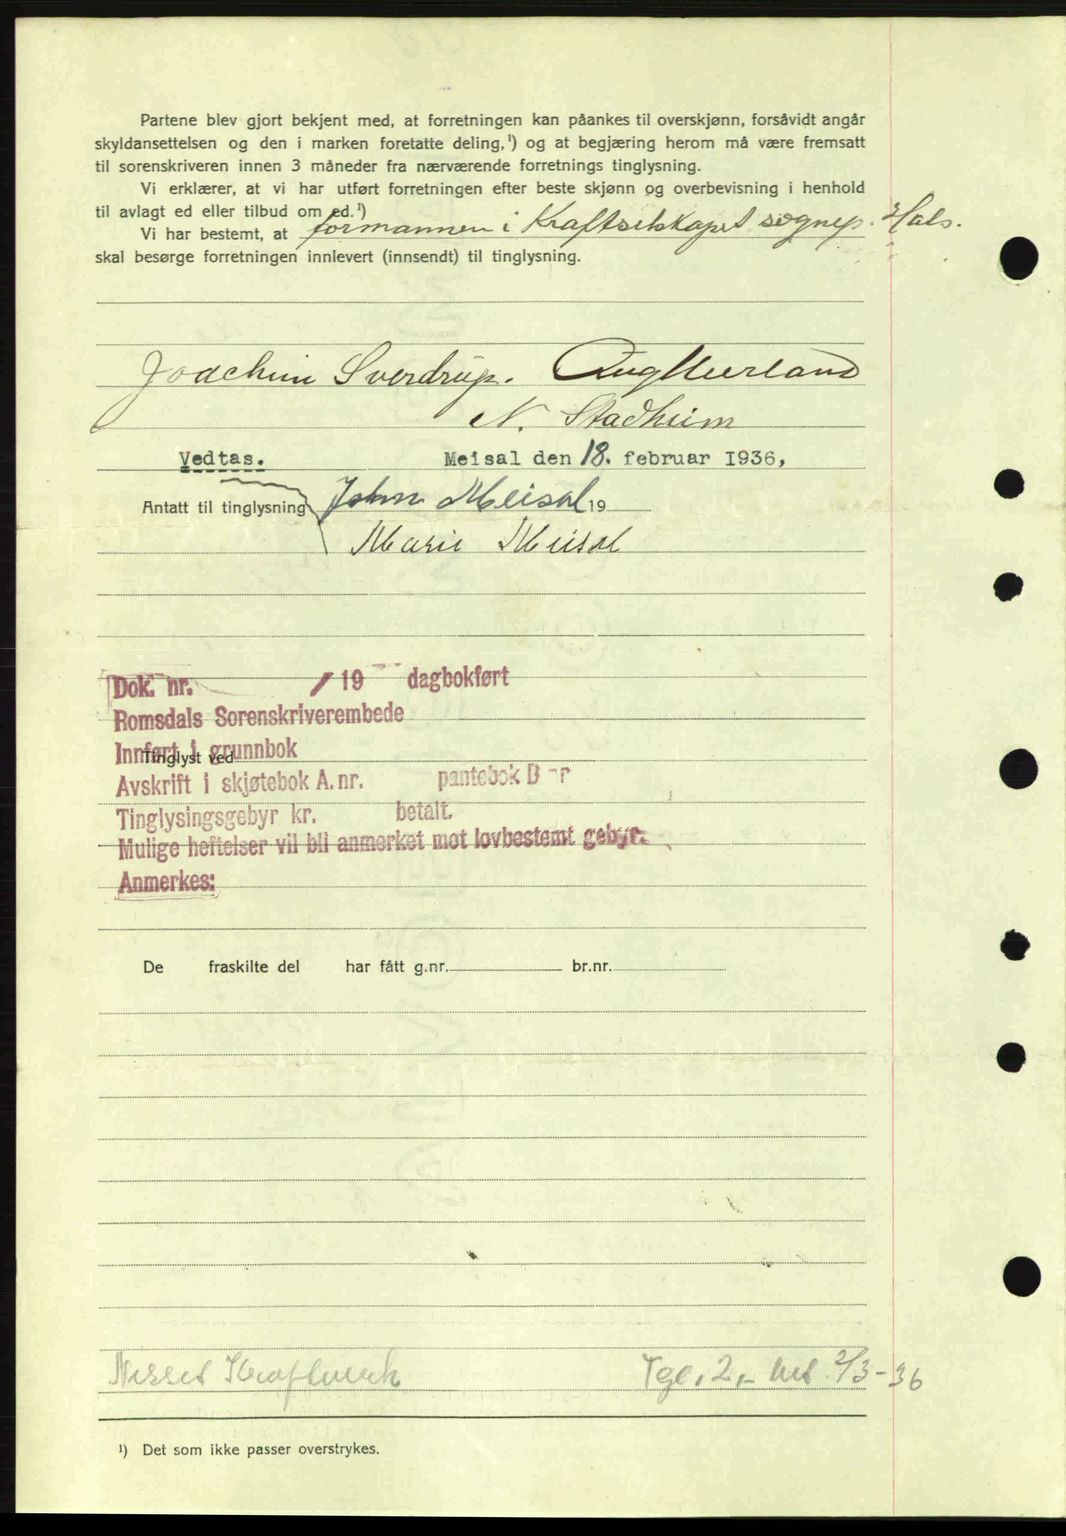 Partene blev gjort bekjent med, at forretningen kan påankes til overskjønn, forsåvidt angår
skyldansettelsen og den i marken foretatte deling,¹) og at begjæring herom må være fremsatt
til sorenskriveren innen 3 måneder fra nærværende forretnings tinglysning.
Vi erklærer, at vi har utført forretningen efter beste skjønn og overbevisning i henhold
til avlagt ed eller tilbud om ed.¹)
Vi har bestemt, at formannen i Kraftselskapet sognep. Hals.
skal besørge forretningen innlevert (innsendt) til tinglysning.
Joachim Sverdrup. Aug Meerland
N. Stadheim
Vedtas. Meisal den 18. februar 1936,
Antatt til tinglysning John Meisal 19
Marie Meisal
Dok. nr. / 19 dagbokført
Romsdals Sorenskriverembede
Innført i grunnbok
Tinglyst ved
Avskrift i skjøtebok A. nr. pantebok B nr
Tinglysingsgebyr kr. betalt.
Mulige heftelser vil bli anmerket mot lovbestemt gebyr.
Anmerkes:
De fraskilte del har fått g.nr. br.nr.
Nesset Kraftverk Tgl. 2,- bet 2/3-36
¹) Det som ikke passer overstrykes.